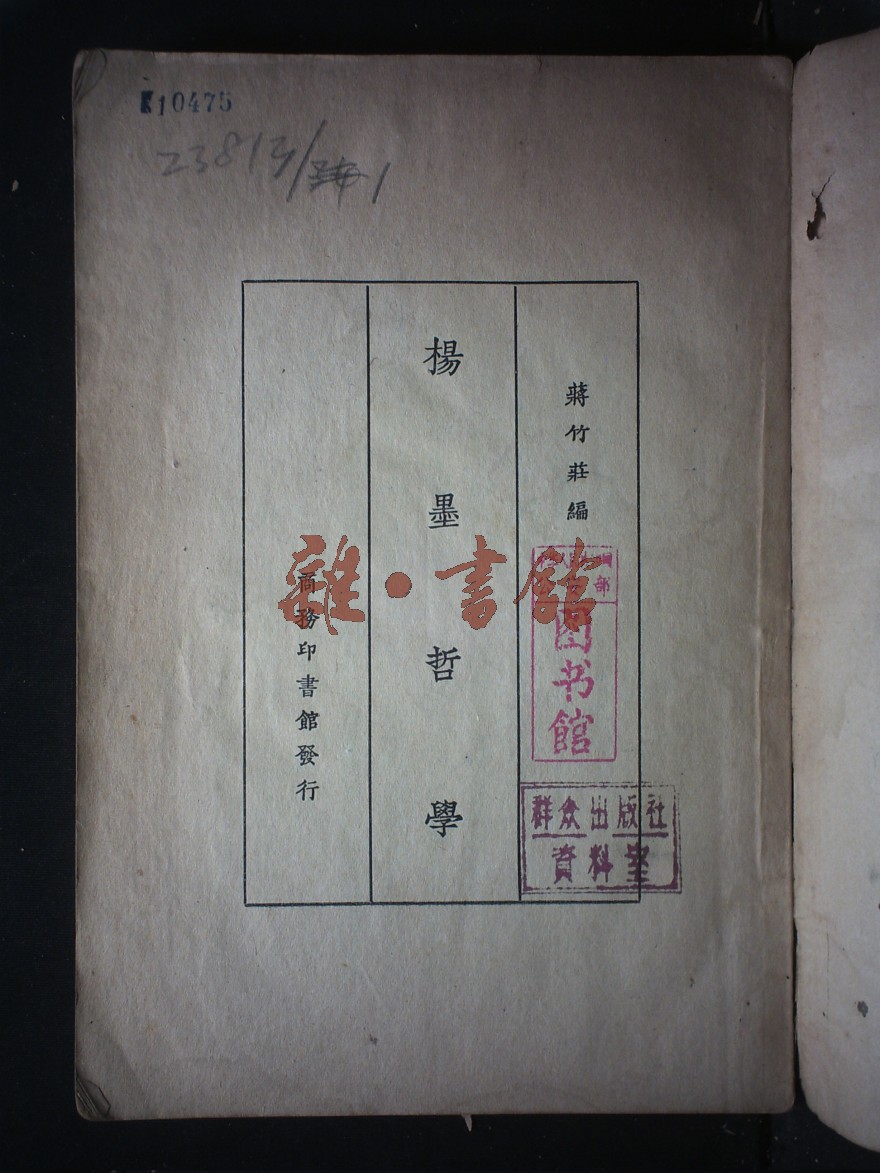 10475
蔣竹莊編
楊墨哲學
商務印書館發行
雜·書館
部
图书馆
群众出版社
資料室